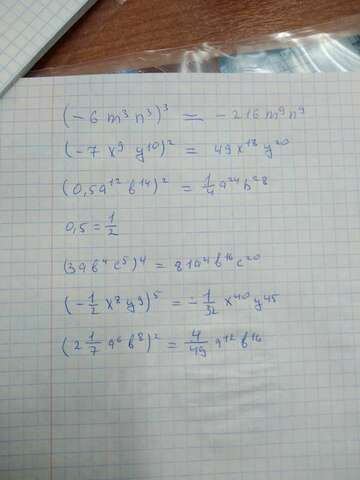 (-6 m³ n³)³ = -216 m⁹ n⁹
(-7 x⁹ y¹⁰)² = 49x¹⁸ y²⁰
(0,5a¹² b¹⁴)² = 1/4 a²⁴ b²⁸
0,5 = 1/2
(3a b⁴ c⁵)⁴ = 81a⁴ b¹⁶ c²⁰
(-1/2 x⁸ y⁹)⁵ = -1/32 x⁴⁰ y⁴⁵
(2 1/7 a⁶ b⁸)² = 4/49 a¹² b¹⁶